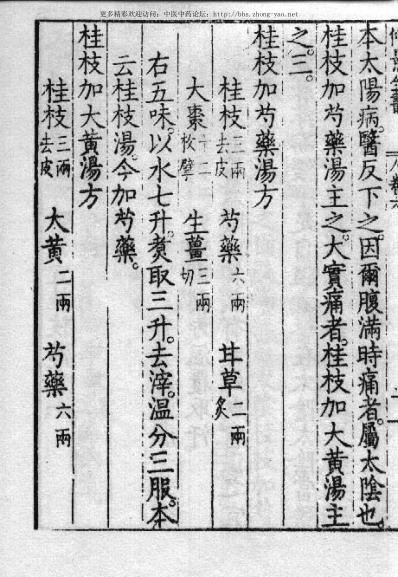 更多精彩欢迎访问：中医中药论坛：http://bbs.zhong-yao.net
本太陽病。醫反下之。因爾腹滿時痛者。屬太陰也。
桂枝加芍藥湯主之。大實痛者。桂枝加大黃湯主
之。三。
桂枝加芍藥湯方
桂枝三兩去皮 芍藥六兩 甘草二兩炙
大棗十二枚擘 生薑三兩切
右五味。以水七升。煑取三升。去滓。溫分三服。本
云桂枝湯。今加芍藥。
桂枝加大黃湯方
桂枝三兩去皮 大黃二兩 芍藥六兩